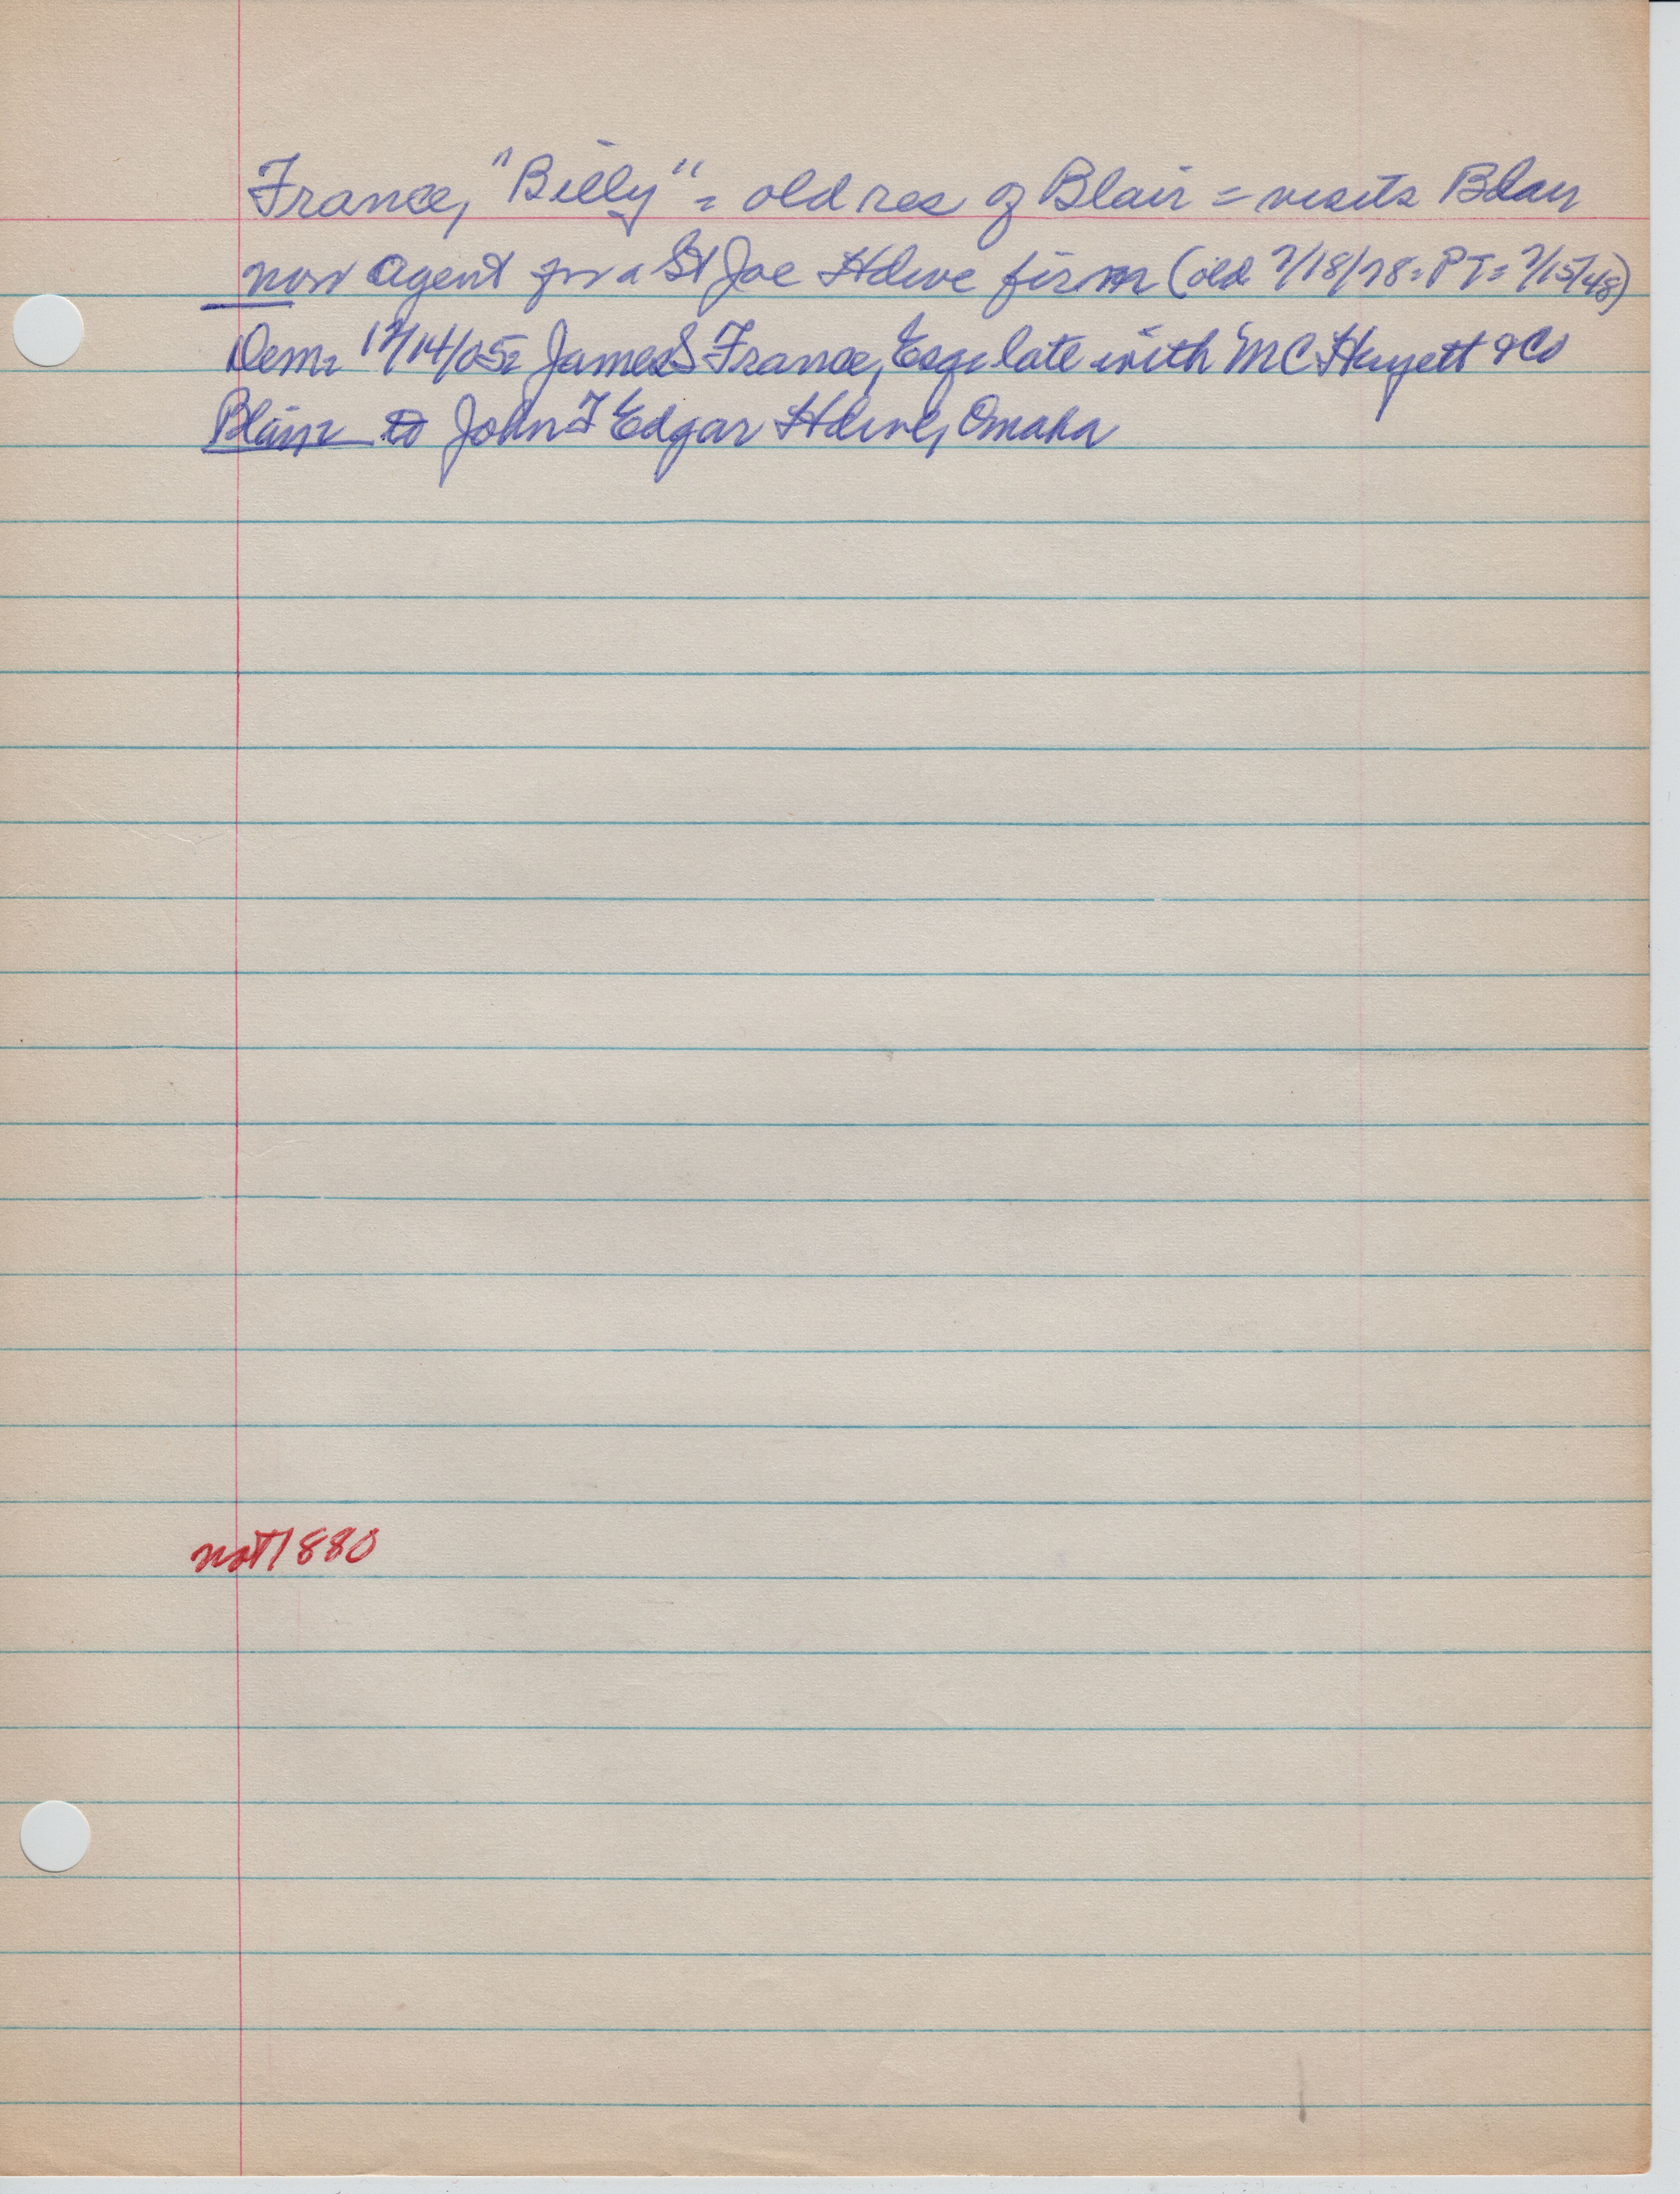 France, "Billy" = old res of Blair = visits Blair
now agent for a St Joe Hdwe firm (old 7/18/78 = PT = 7/15/48)
Dem = 12/14/05 = James S France, Esq = late with MC Huyett & Co
Blair to John T Edgar Hdwe, Omaha
not 1880